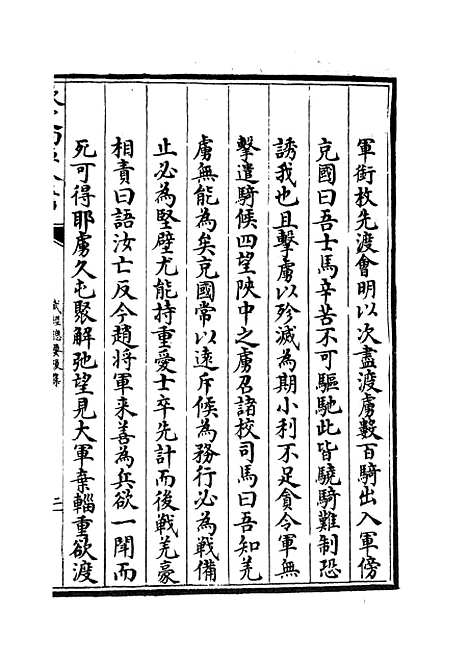 軍銜枚先渡會明以次盡渡虜數百騎出入軍傍
克國曰吾士馬辛苦不可驅馳此皆驍騎難制恐
誘我也且擊虜以殄滅為期小利不足貪令軍無
擊遣騎候四望陜中之虜召諸校司馬曰吾知羌
虜無能為矣克國常以遠斥候為務行必為戰備
止必為堅壁尤能持重愛士卒先計而後戰羌豪
相責曰語汝亡反今趙將軍来善為兵欲一鬪而
死可得耶虜久屯聚解弛望見大軍棄輜重欲渡
武經總要後集
二